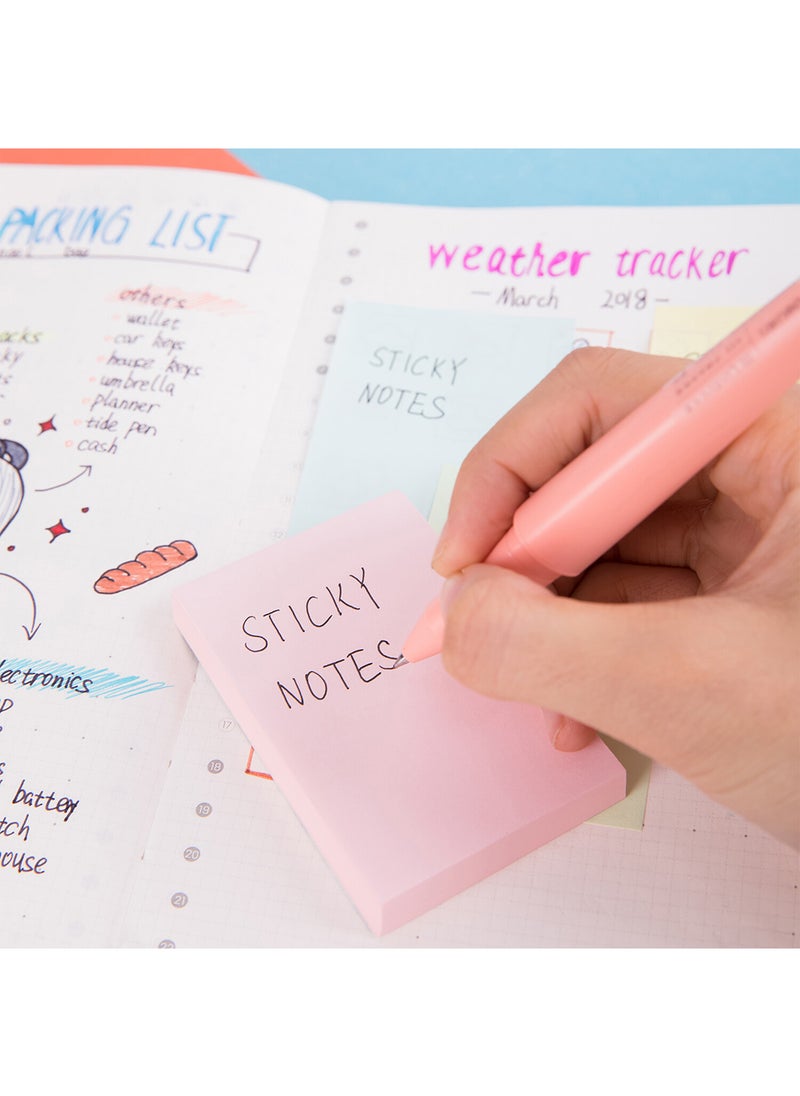 PACKING LIST
others
wallet
car keys
house keys
umbrella
planner
tide pen
cash
battery
weather tracker
- March 2018 -
STICKY
NOTES
STICKY
NOTES
17
18
19
20
21
22